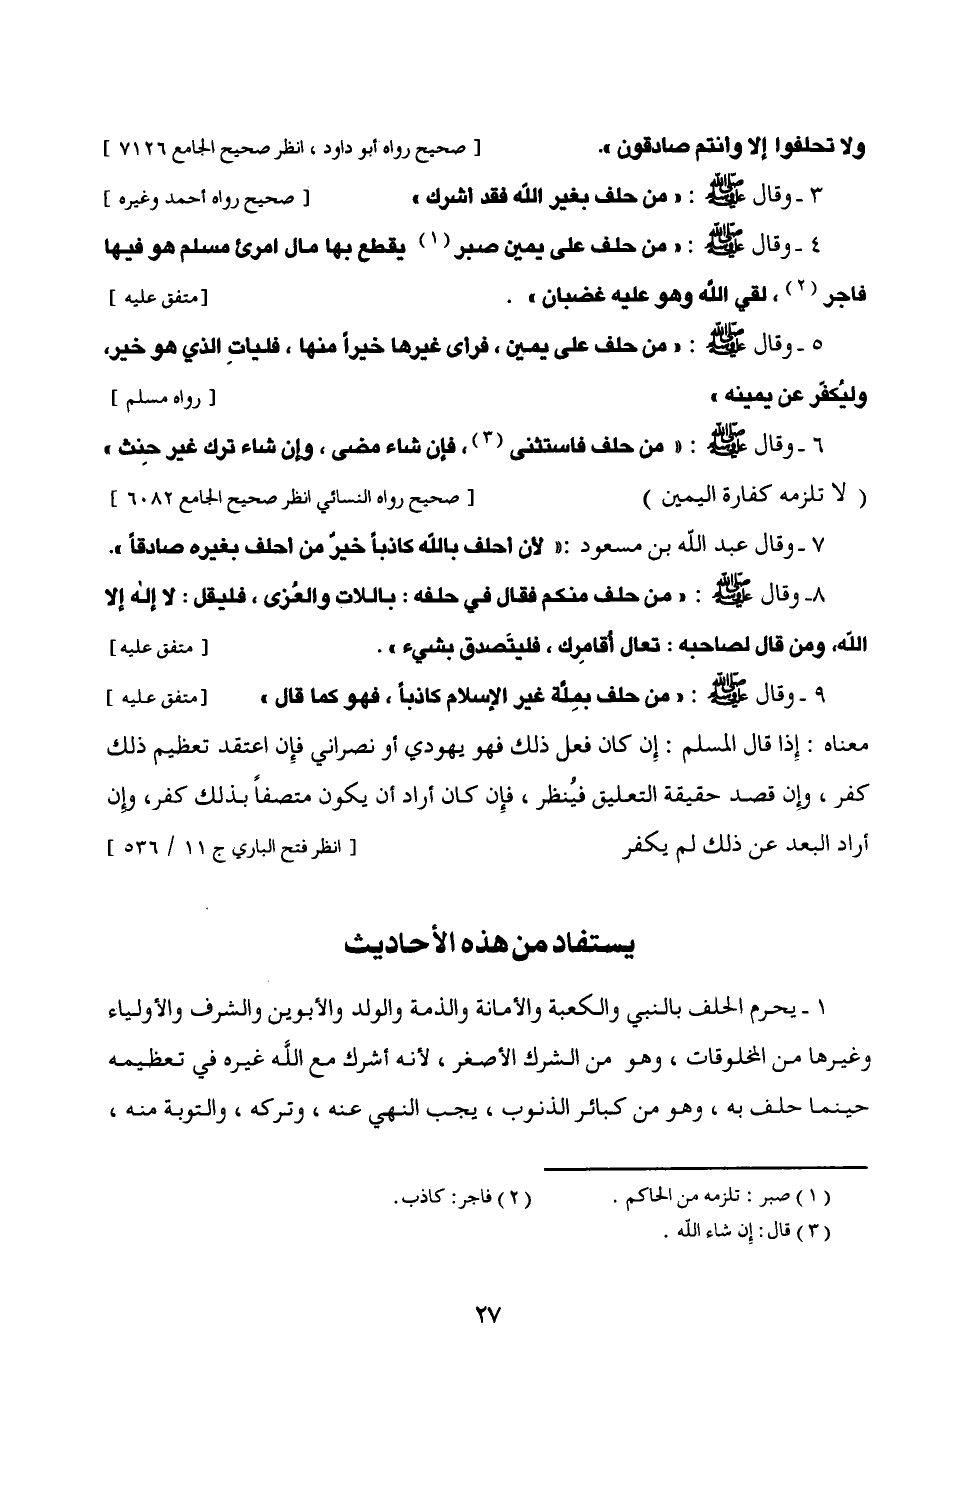 ولا تحلفوا إلا وأنتم صادقون ». [ صحيح رواه أبو داود ، انظر صحيح الجامع ٧١٢٦ ]
٣ ـ وقال ﷺ : « من حلف بغير الله فقد أشرك » [ صحيح رواه أحمد وغيره ]
٤ ـ وقال ﷺ : « من حلف على يمين صبر (١) يقطع بها مال امرئ مسلم هو فيها
فاجر (٢) ، لقي الله وهو عليه غضبان » . [متفق عليه ]
٥ ـ وقال ﷺ : « من حلف على يمين ، فرأى غيرها خيراً منها ، فليأتِ الذي هو خير،
وليُكفّر عن يمينه » [ رواه مسلم ]
٦ ـ وقال ﷺ : « من حلف فاستثنى (٣) ، فإن شاء مضى ، وإن شاء ترك غير حنِث »
( لا تلزمه كفارة اليمين ) [ صحيح رواه النسائي انظر صحيح الجامع ٦٠٨٢ ]
٧ ـ وقال عبد الله بن مسعود :« لأن أحلف بالله كاذباً خيرٌ من أحلف بغيره صادقاً ».
٨ـ وقال ﷺ : « من حلف منكم فقال في حلفه : باللات والعُزى ، فليقل : لا إله إلا
الله، ومن قال لصاحبه : تعال أُقامِرك ، فليتَصدق بشيء » . [ متفق عليه]
٩ ـ وقال ﷺ : « من حلف بمِلّة غير الإسلام كاذباً ، فهو كما قال » [متفق عليه ]
معناه : إذا قال المسلم : إن كان فعل ذلك فهو يهودي أو نصراني فإن اعتقد تعظيم ذلك
كفر ، وإن قصد حقيقة التعليق فيُنظر ، فإن كان أراد أن يكون متصفاً بذلك كفر، وإن
أراد البعد عن ذلك لم يكفر [ انظر فتح الباري ج ١١ / ٥٣٦ ]
يستفاد من هذه الأحاديث
١ ـ يحرم الحلف بالنبي والكعبة والأمانة والذمة والولد والأبوين والشرف والأولياء
وغيرها من المخلوقات ، وهو من الشرك الأصغر ، لأنه أشرك مع اللَّه غيره في تعظيمه
حينما حلف به ، وهو من كبائر الذنوب ، يجب النهي عنه ، وتركه ، والتوبة منه ،
(١) صبر : تلزمه من الحاكم . (٢) فاجر: كاذب.
(٣) قال: إن شاء الله .
٢٧